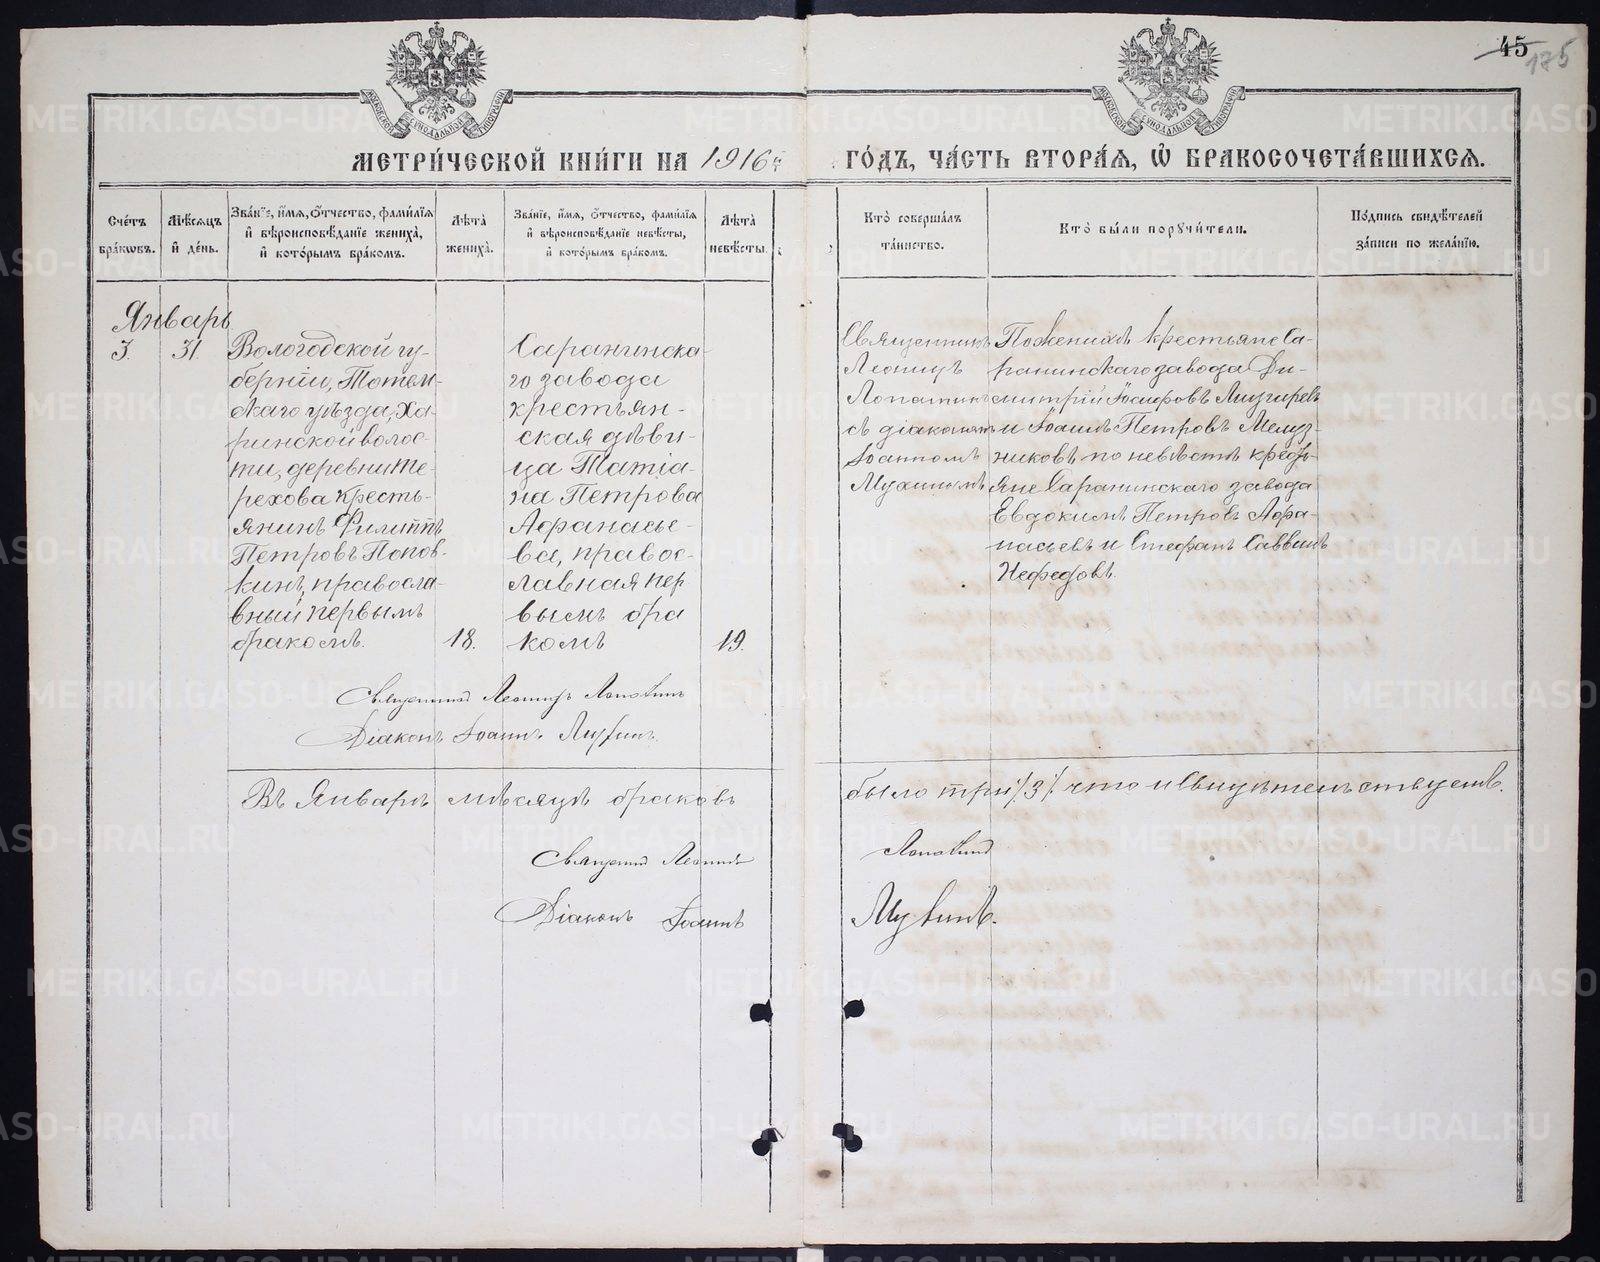 45
175
МОСКОВСКОЙ СѴНОДАЛЬНОЙ ТИПОГРАФІИ
МОСКОВСКОЙ СѴНОДАЛЬНОЙ ТИПОГРАФІИ
МЕТРИ́ЧЕСКОЙ КНИ́ГИ НА 1916й
ГО́ДЪ, ЧА́СТЬ ВТОРА́Я, Ѡ҆ БРАКОСОЧЕТА́ВШИХСЯ.
Сче́тъ бра́кѡвъ.
Мѣ́сяцъ и҆ де́нь.
Зва́нїе, и҆́мѧ, ѻ҆́тчество, фамилїѧ и҆ вѣроисповѣ́данїе жениха̀, и҆ кото́рымъ бра́комъ.
Лѣ́та̀ жениха̀.
Зва́нїе, и҆́мѧ, ѻ҆́тчество, фами́лїѧ и҆ вѣроисповѣ́данїе невѣ́сты, и҆ кото́рымъ бра́комъ.
Лѣ́та̀ невѣ́сты.
Кто̀ соверша́лъ та́инство.
Кто̀ бы́ли порꙋчи́тели.
По́дпись свидѣ́телей за́писи по жела́нїю.
Январь
3.
31.
Вологодской гу-
берніи, Тотем-
скаго уѣзда, Ха-
ринской волос-
ти, деревни Те-
рехова кресть-
янинъ Филиппъ
Петровъ Попов-
кинъ, правосла-
вный первымъ
бракомъ.
18.
Саранинска-
го завода
крестьян-
ская дѣви-
ца Татіа-
на Петрова
Афанасье-
ва, правос-
лавная пер
вымъ бра
комъ
19.
Священникъ
Леонидъ
Лопатинъ
съ діакономъ
Іоанномъ
Мухинымъ
По женихѣ крестьяне Са-
ранинскаго завода Ди-
митрій Іосифовъ Лузгиревъ
и Іоаннъ Петровъ Мелуз-
никовъ, по невѣстѣ кресть-
яне Саранинскаго завода
Евдокимъ Петровъ Афа-
насьевъ и Стефанъ Саввинъ
Нефедовъ.
Священникъ Леонидъ Лопатинъ
Діаконъ Іоаннъ Мухинъ.
Въ Январѣ мѣсяцѣ браковъ
было три /3/ что и свидѣтельствуемъ.
Священникъ Леонидъ
Лопатинъ
Діаконъ Іоаннъ
Мухинъ.
METRIKI.GASO-URAL.RU